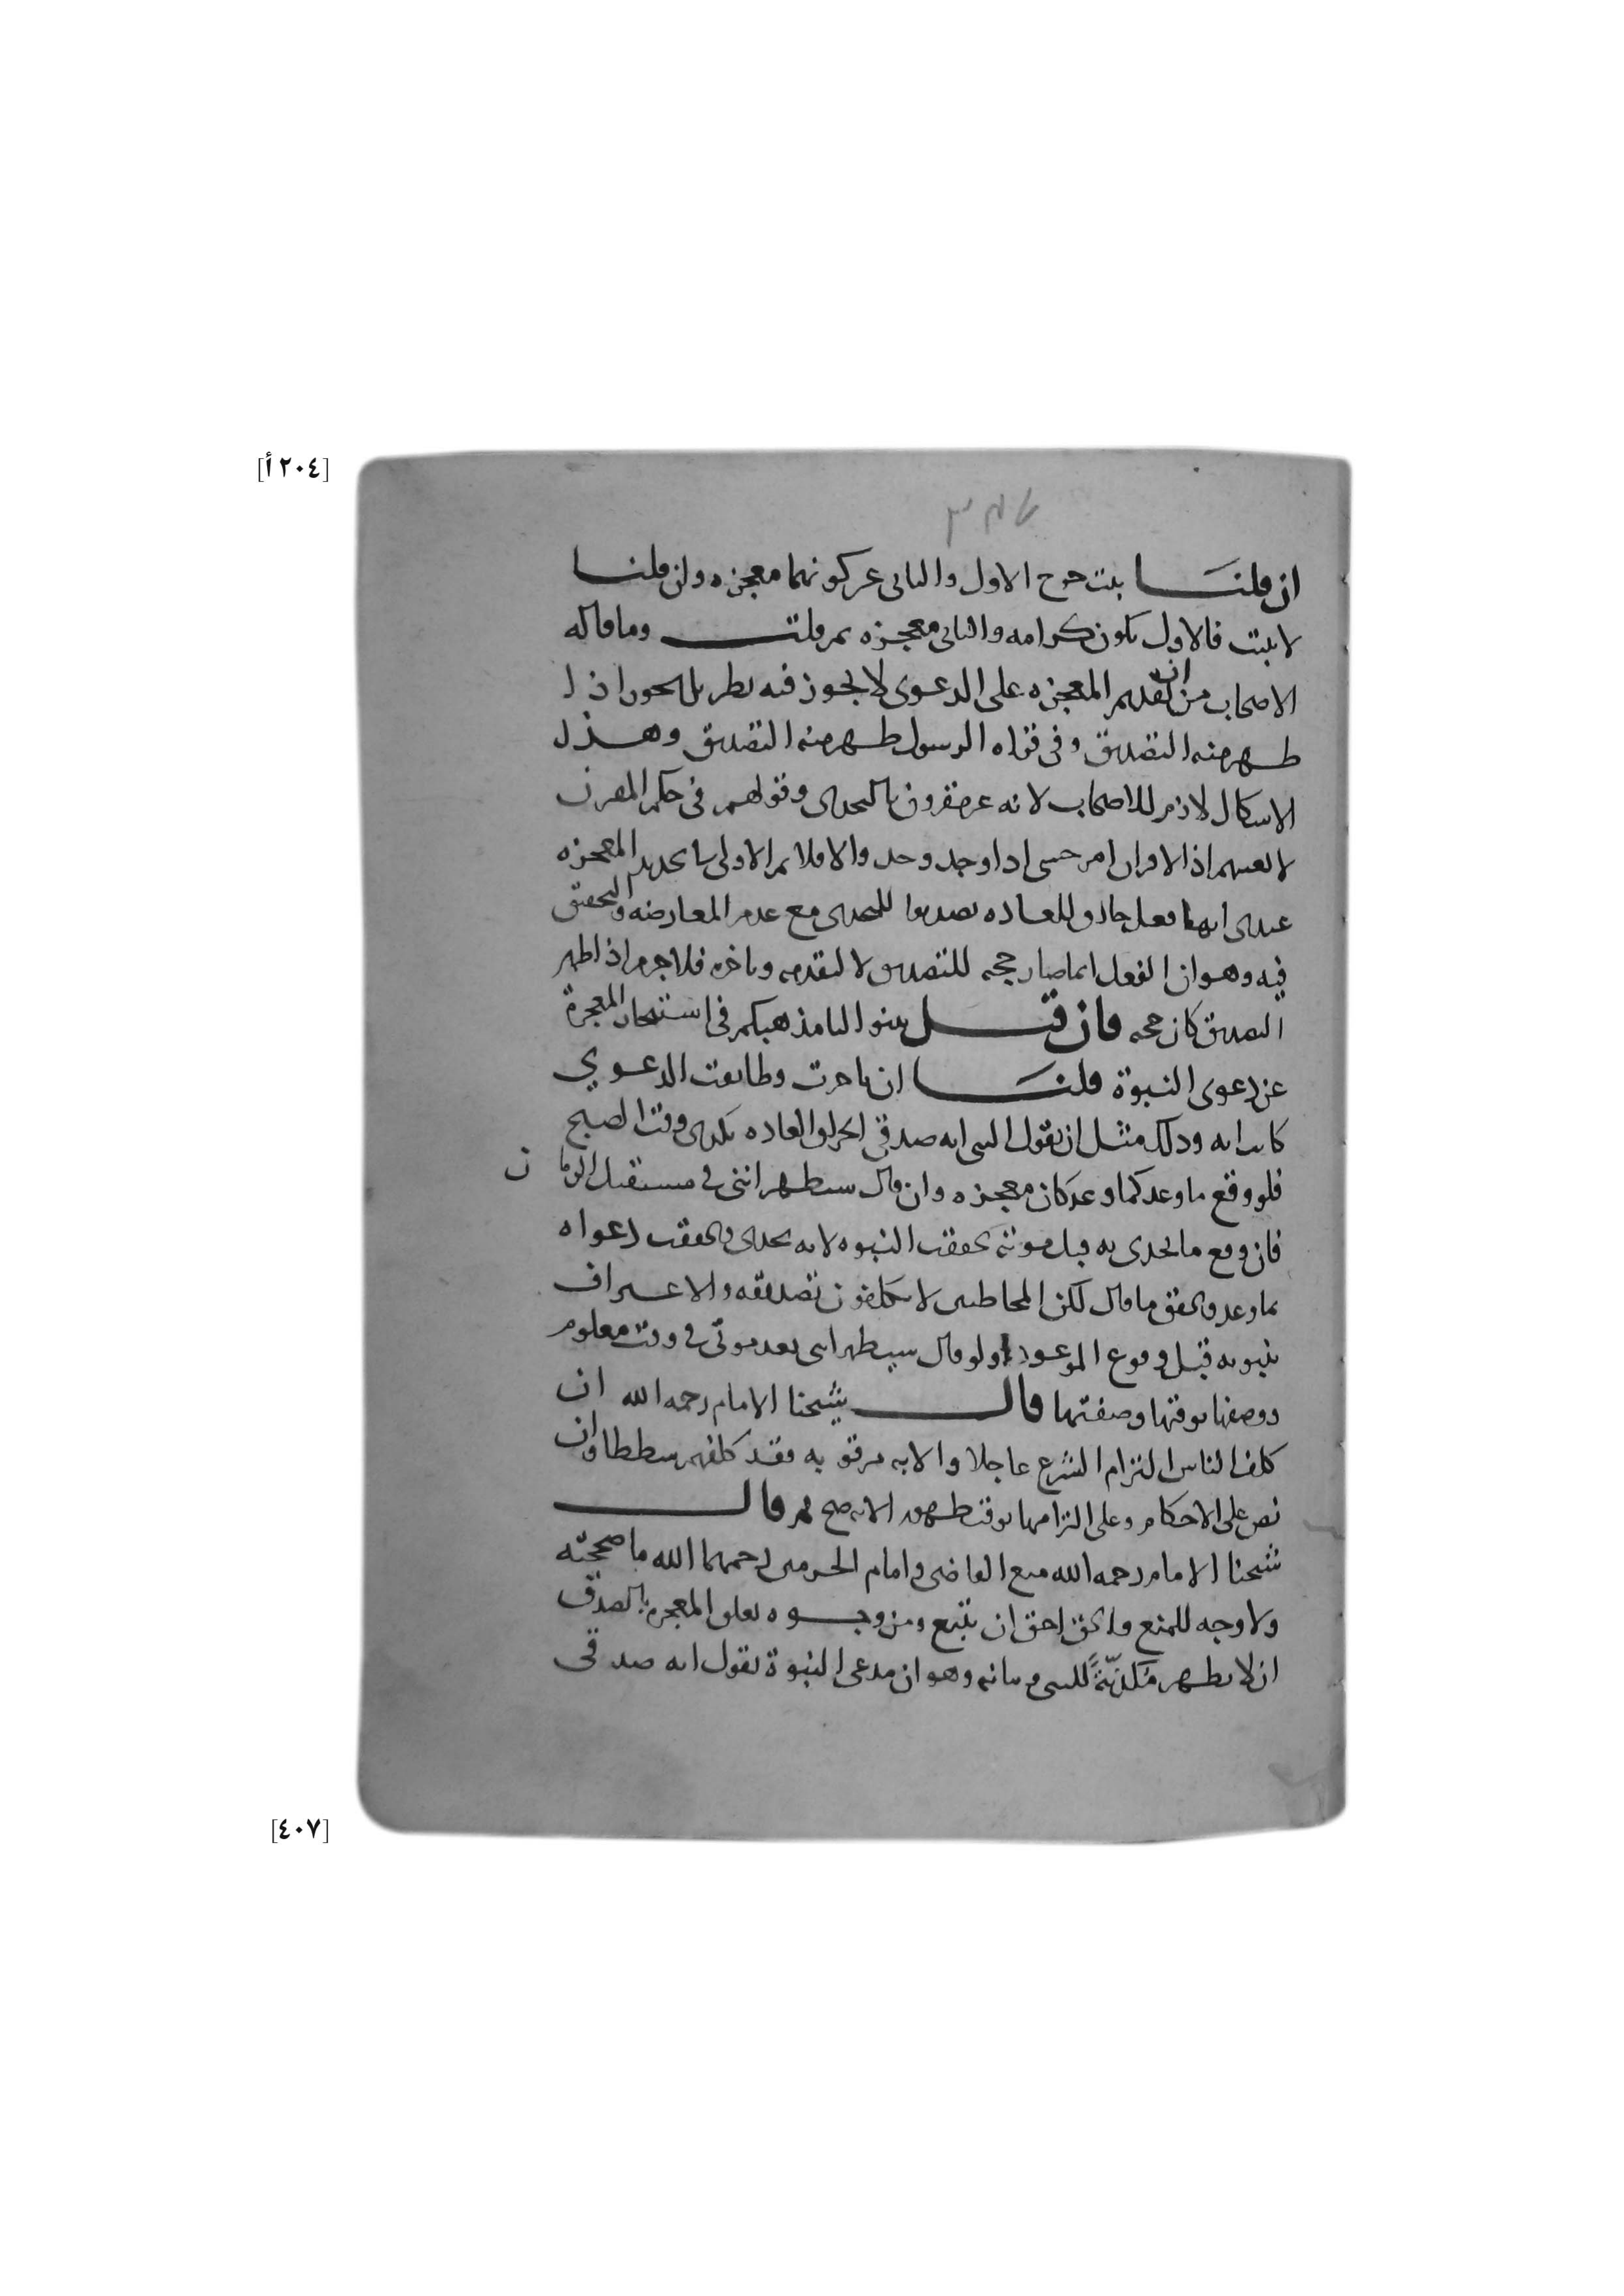 [٢٠٤ أ]
ان قلنا يثبت خرج الاول والثاني عن كونهما معجزه وان قلنا
لا يثبت فالاول يكون كرامه والثاني معجزه ثم قلت وما قاله
الاصحاب من ان تقديم المعجزه على الدعوى لا يجوز فيه نظر بل يجوز اذا
ظهر منه التصديق وفي فتراه الرسول ظهر منه التصديق وهذا
الاشكال لازم للاصحاب لانه غير مقرون بالتحدى وقولهم في حكم المقرن
لا يغنيهم اذ الاقران امر حسى اذا وجد وجد والا فلا ثم الاولى تحديد المعجزه
عندى انها فعل خارق للعاده تصديقا للتحدى مع عدم المعارضه والتحقيق
فيه وهو ان الفعل انما صار حجه للتصديق لا لتقدمه وتاخره فلا جرم اذا ظهر
التصديق كان حجه فان قيل بينوا لنا مذهبكم في استئخار المعجزة
عن دعوى النبوة قلنا ان تاخرت وطابقت الدعوي
كانت ايه وذلك مثل ان يقول النبى ايه صدقى انخراق العاده بكذى وقت الصبح
فلو وقع ما وعد كما وعد كان معجزه وان قال ستظهر ايتى في مستقبل الزمان
فان وقع ما تحدى به قبل موته تحققت النبوه لانه تحدى وتحققت دعواه
بما وعد وتحقق ما قال لكن المخاطبين لا يكلفون تصديقه والاعتراف
بنبوته قبل وقوع الموعود ولو قال ستظهر ايتى بعد موتى في وقت معلوم
ووصفها بوقتها وصفتها قال شيخنا الامام رحمه الله ان
كلف الناس التزام الشرع عاجلا والايه مرقوبه فقد كلفهم شططا وان
نص على الاحكام وعلى التزامها بوقت ظهور الايه صح ثم قال
شيخنا الامام رحمه الله منع القاضى وامام الحرمين رحمهما الله ما صححته
ولا وجه للمنع والحق احق ان يتبع ومن وجوه تعلق المعجزه بالصدق
ان لا يظهر مكذبةً للنبى وبيانه وهو ان مدعى النبوة يقول ايه صدقى
[٤٠٧]